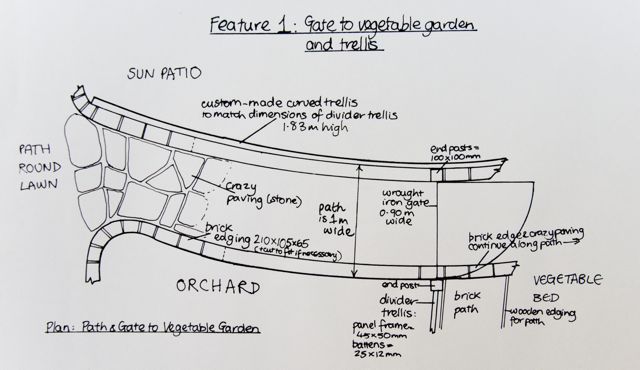 Feature 1: Gate to vegetable garden
and trellis
SUN PATIO
custom-made curved trellis
to match dimensions of divider trellis
1.83m high
PATH
ROUND
LAWN
end posts =
100x100mm
crazy
paving (stone)
path
is 1m
wide
wrought
iron gate
0.90m
wide
brick
edging 210x105x65
(+ cut to fit if necessary)
brick edge & crazy paving
continue along path →
ORCHARD
end post
divider
trellis:
panel frame =
45x50mm
battens =
25x12mm
brick
path
VEGETABLE
BED
wooden edging
for path
Plan: Path & Gate to Vegetable Garden